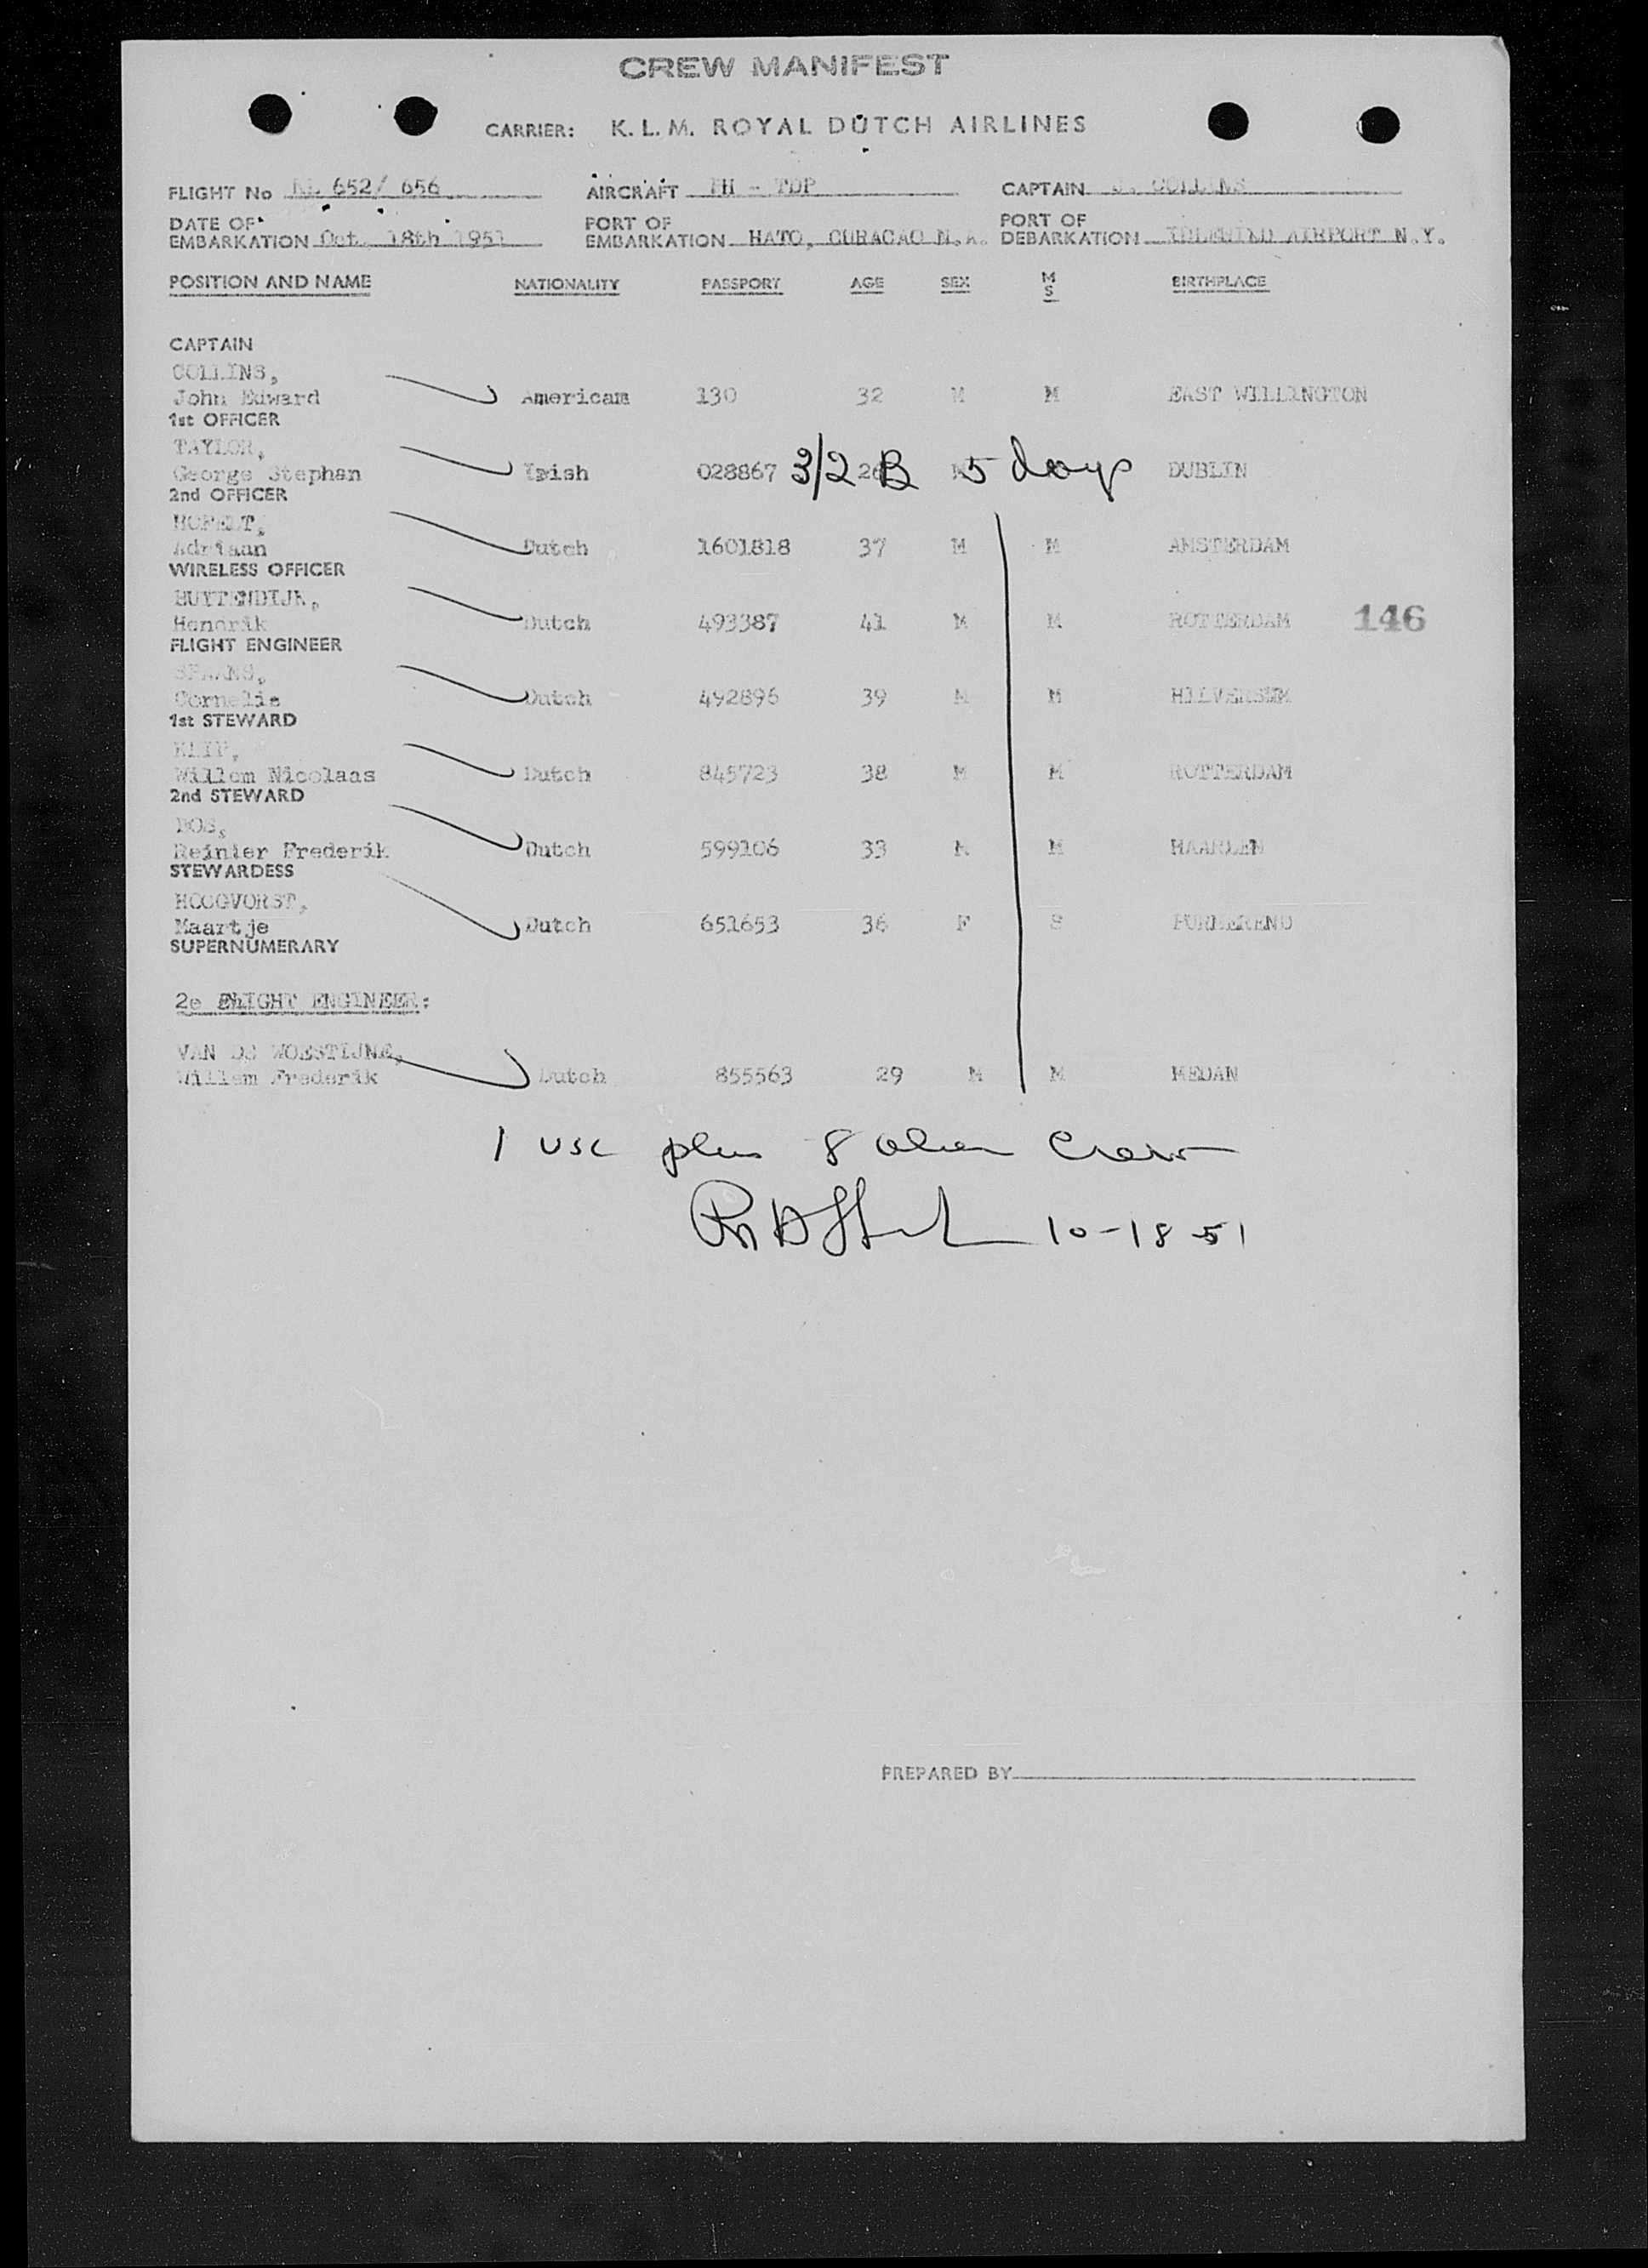 CREW MANIFEST
CARRIER: K. L. M. ROYAL DUTCH AIRLINES
FLIGHT No KL 652/ 656 AIRCRAFT PH - TDP CAPTAIN J. COLLINS
DATE OF EMBARKATION Oct. 18th 1951 PORT OF EMBARKATION HATO, CURACAO N.A. PORT OF DEBARKATION IDLEWILD AIRPORT N.Y.
POSITION AND NAME NATIONALITY PASSPORT AGE SEX M S BIRTHPLACE
CAPTAIN
COLLINS,
John Edward Americam 130 32 M M EAST WILLINGTON
1st OFFICER
TAYLOR,
George Stephan Irish 028867 3/2 B 26 5 days DUBLIN
2nd OFFICER
Adriaan Dutch 1601818 37 M M AMSTERDAM
WIRELESS OFFICER
BUYTENDIJK,
Hendrik Dutch 493387 41 M M ROTTERDAM 146
FLIGHT ENGINEER
SPAANS,
Cornelis Dutch 492896 39 M M HILVERSUM
1st STEWARD
Willem Nicolaas Dutch 845723 38 M M ROTTERDAM
2nd STEWARD
BOS,
Reinier Frederik Dutch 599106 33 M M HAARLEM
STEWARDESS
HOOGVORST,
Maartje Dutch 651653 36 F S PURMEREND
SUPERNUMERARY
2e FLIGHT ENGINEER:
VAN DE WOESTIJNE,
Willem Frederik Dutch 855563 29 M M MEDAN
1 USC plus 8 alien Crew
10-18-51
PREPARED BY